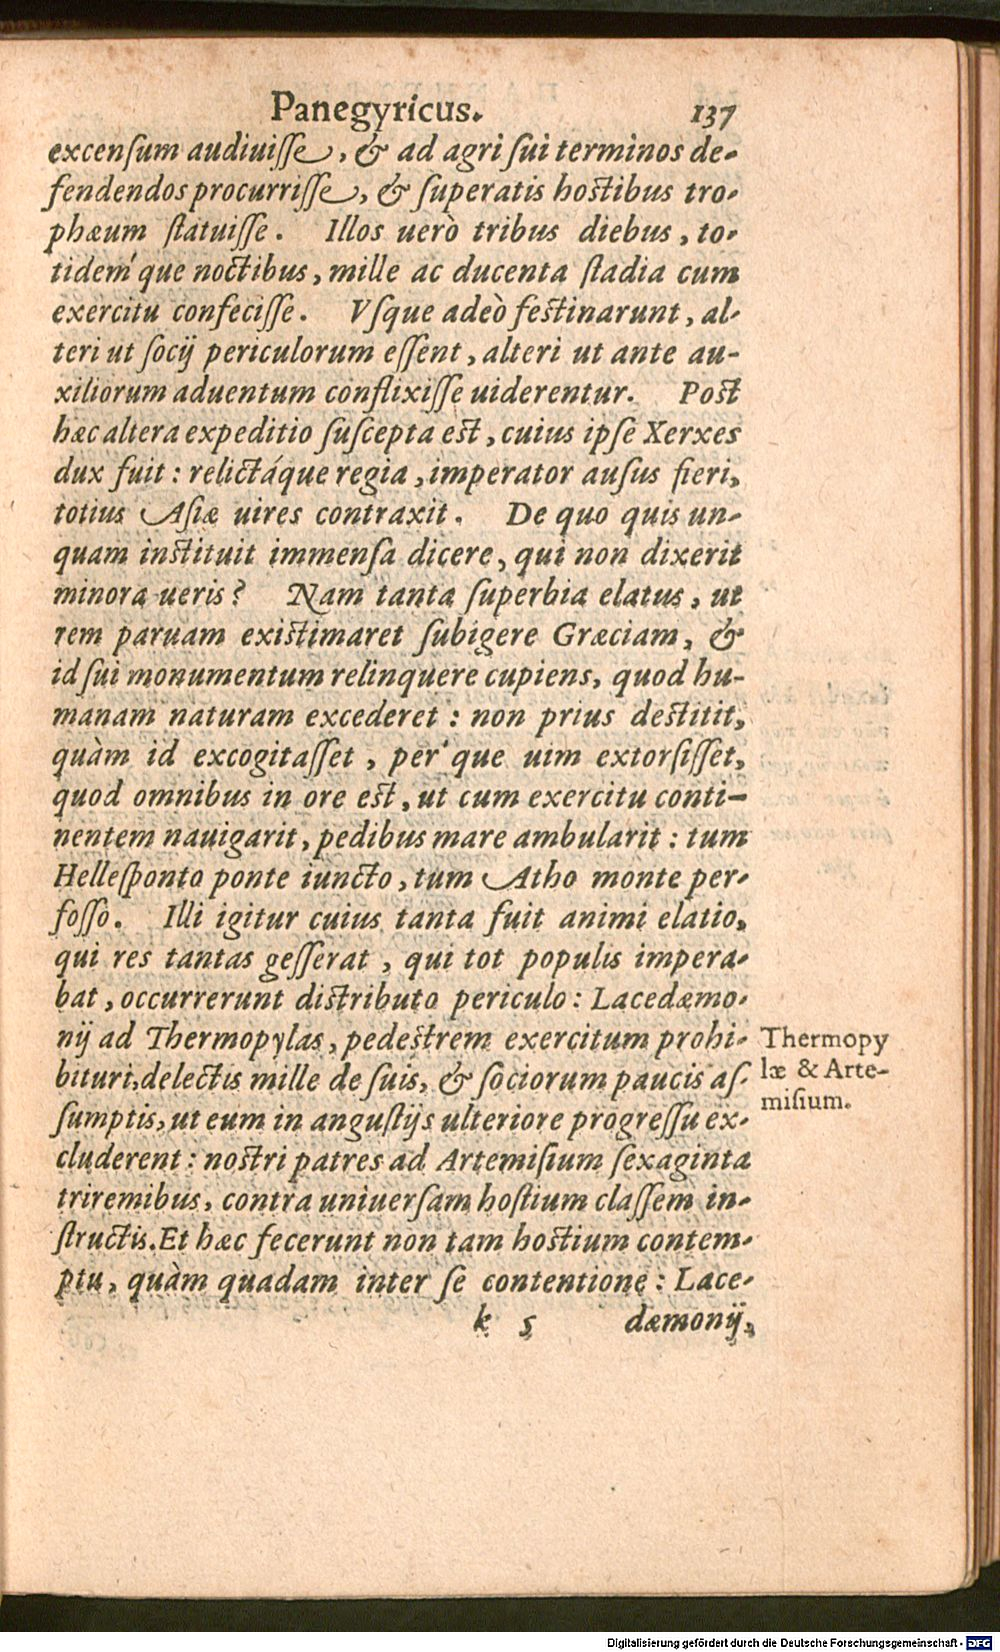 Panegyricus. 137
excenſum audiuiſſe, & ad agri ſui terminos de-
fendendos procurriſſe, & ſuperatis hoſtibus tro-
phæum ſtatuiſſe. Illos uerò tribus diebus, to-
tidem'que noctibus, mille ac ducenta ſtadia cum
exercitu confeciſſe. Vſque adeò feſtinarunt, al-
teri ut ſocij periculorum eſſent, alteri ut ante au-
xiliorum aduentum conflixiſſe uiderentur. Poſt
hæc altera expeditio ſuſcepta eſt, cuius ipſe Xerxes
dux fuit: relictáque regia, imperator auſus fieri,
totius Aſiæ uires contraxit. De quo quis un-
quam inſtituit immenſa dicere, qui non dixerit
minora ueris? Nam tanta ſuperbia elatus, ut
rem paruam exiſtimaret ſubigere Græciam, &
id ſui monumentum relinquere cupiens, quod hu-
manam naturam excederet: non prius deſtitit,
quàm id excogitaſſet, per'que uim extorſiſſet,
quod omnibus in ore eſt, ut cum exercitu conti-
nentem nauigarit, pedibus mare ambularit: tum
Helleſponto ponte iuncto, tum Atho monte per-
foſſo. Illi igitur cuius tanta fuit animi elatio,
qui res tantas geſſerat, qui tot populis impera-
bat, occurrerunt diſtributo periculo: Lacedæmo-
nij ad Thermopylas, pedeſtrem exercitum prohi-
bituri, delectis mille de ſuis, & ſociorum paucis aſ-
ſumptis, ut eum in anguſtijs ulteriore progreſſu ex-
cluderent: noſtri patres ad Artemiſium ſexaginta
triremibus, contra uniuerſam hoſtium claſſem in-
ſtructis. Et hæc fecerunt non tam hoſtium contem-
ptu, quàm quadam inter ſe contentione: Lace-
k 5 dæmonij,
Thermopy
læ & Arte-
miſium.
Digitalisierung gefördert durch die Deutsche Forschungsgemeinschaft - DFG